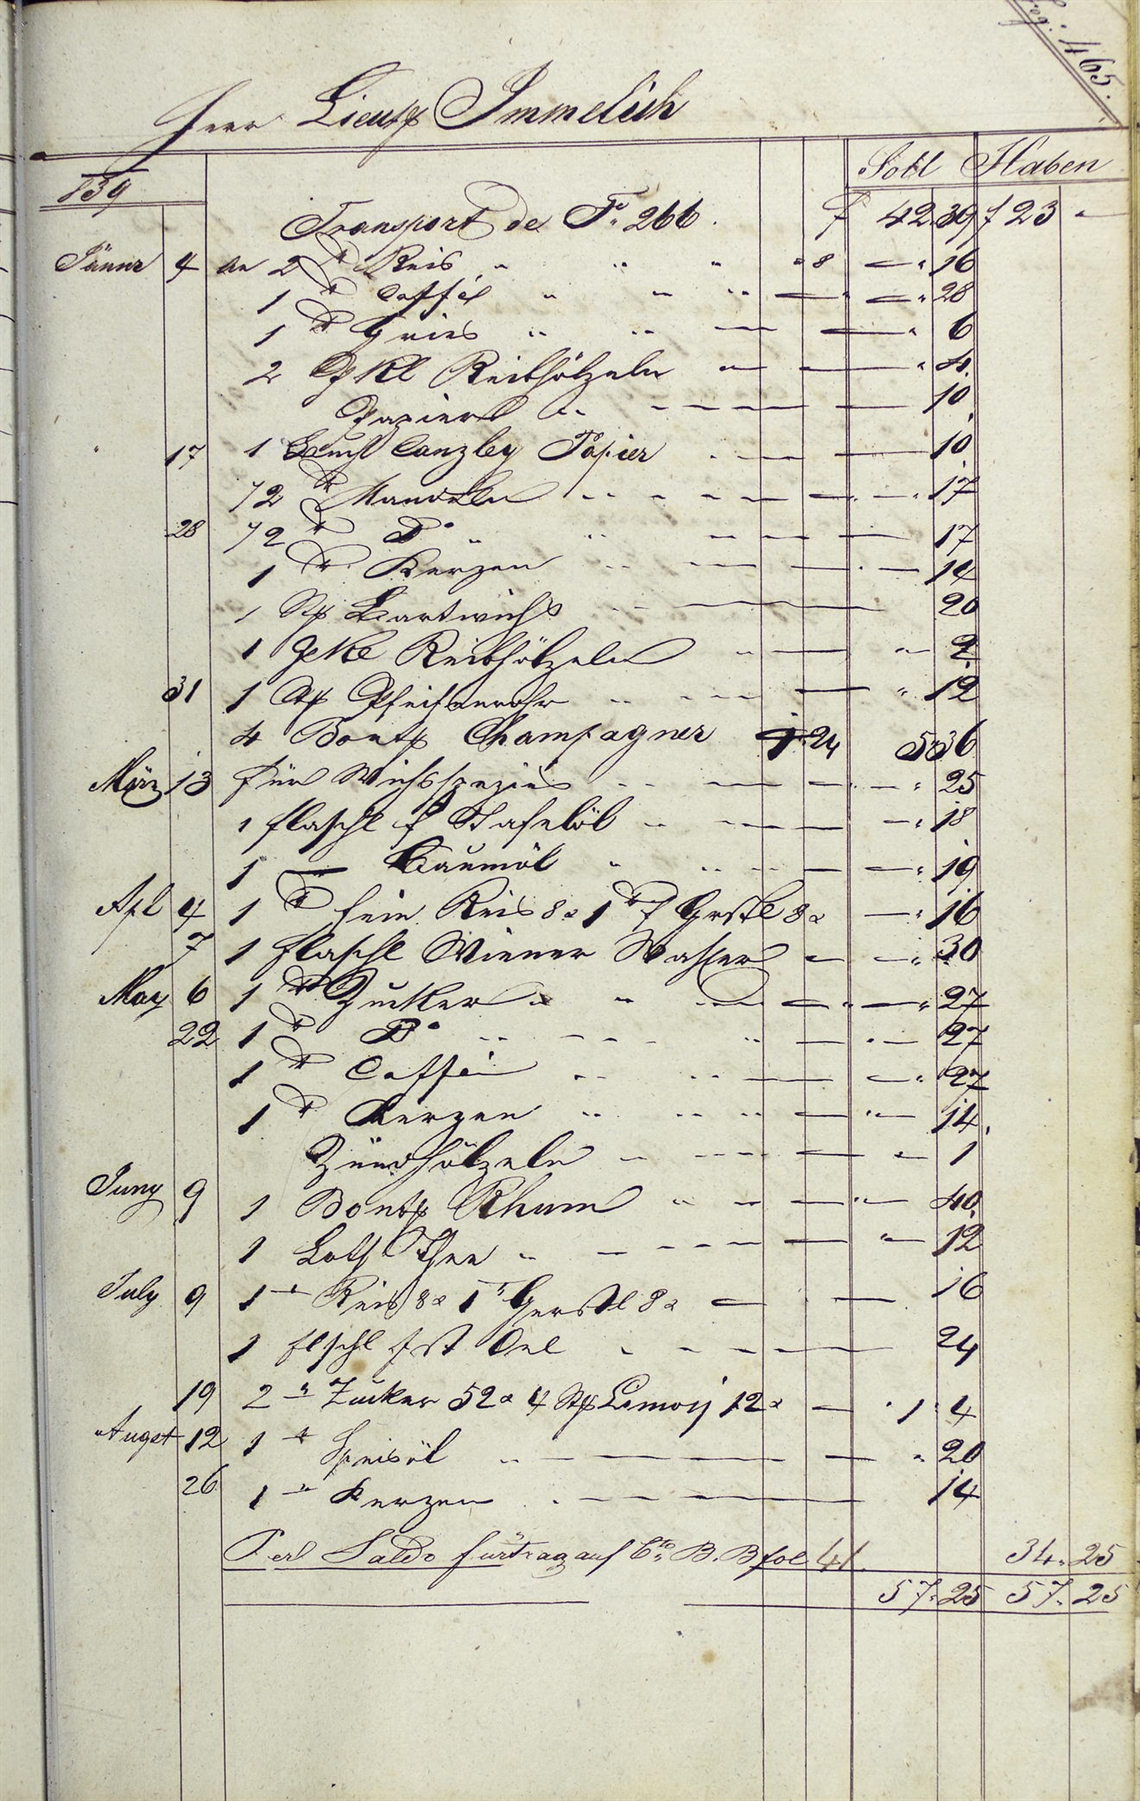 fog: 465.
Herr Lieut Immelich
Soll Haben
839
Transport de Fo 266. f 42 39 f 23 -
Jänner 4 An 2 ℔ Reis " " " " 8 — " 16
1 ℔ Caffee " — " — — " 28
1 ℔ Gries " " — — " 6
2 Pkl Reibhölzeln — — " 4
Papier — — 10
17 1 Buch Canzley Papier — — 10
/2 ℔ Mandeln — — " 17
28 /2 ℔ Do " " — — 17
1 ℔ Kerzen — — 14
1 St Bartwichs — 20
1 Pkl Reibhölzeln — " 2
31 1 St Pfeifenrohr — " 12
4 Bout Champagner 1. 24 5 36
März 13 für Wichsspezies — — " 25
1 flaschl f Tafelöl — — " 18
1 — Baumöl — — " 19
Apl 4 1 ℔ fein Reis 8 x 1 ℔ f Gerstl 8 x — " 16
7 1 flaschl Wiener Wasser — " 30
May 6 1 ℔ Zucker " — — " 27
22 1 ℔ Do — — " — 27
1 ℔ Caffee — — " 27
1 ℔ Kerzen — " — 14.
Zündhölzeln — — 1
Juny 9 1 Bout Rhum " — — " — 40
1 Loth Thee " — — " — 12
July 9 1 ℔ Reis 8 x 1 ℔ Gerstl 8 x — — 16
1 flschl fst Oel — 24
19 2 ℔ Zucker 52 x 4 St Lemoni 12 x — " 1 " 4
Augst 12 1 ℔ Speisöl — — " 20
26 1 ℔ Kerzen — 14
Per Saldo fürtrag auf Cto B. B fol 41. 34. 25
57. 25 57. 25